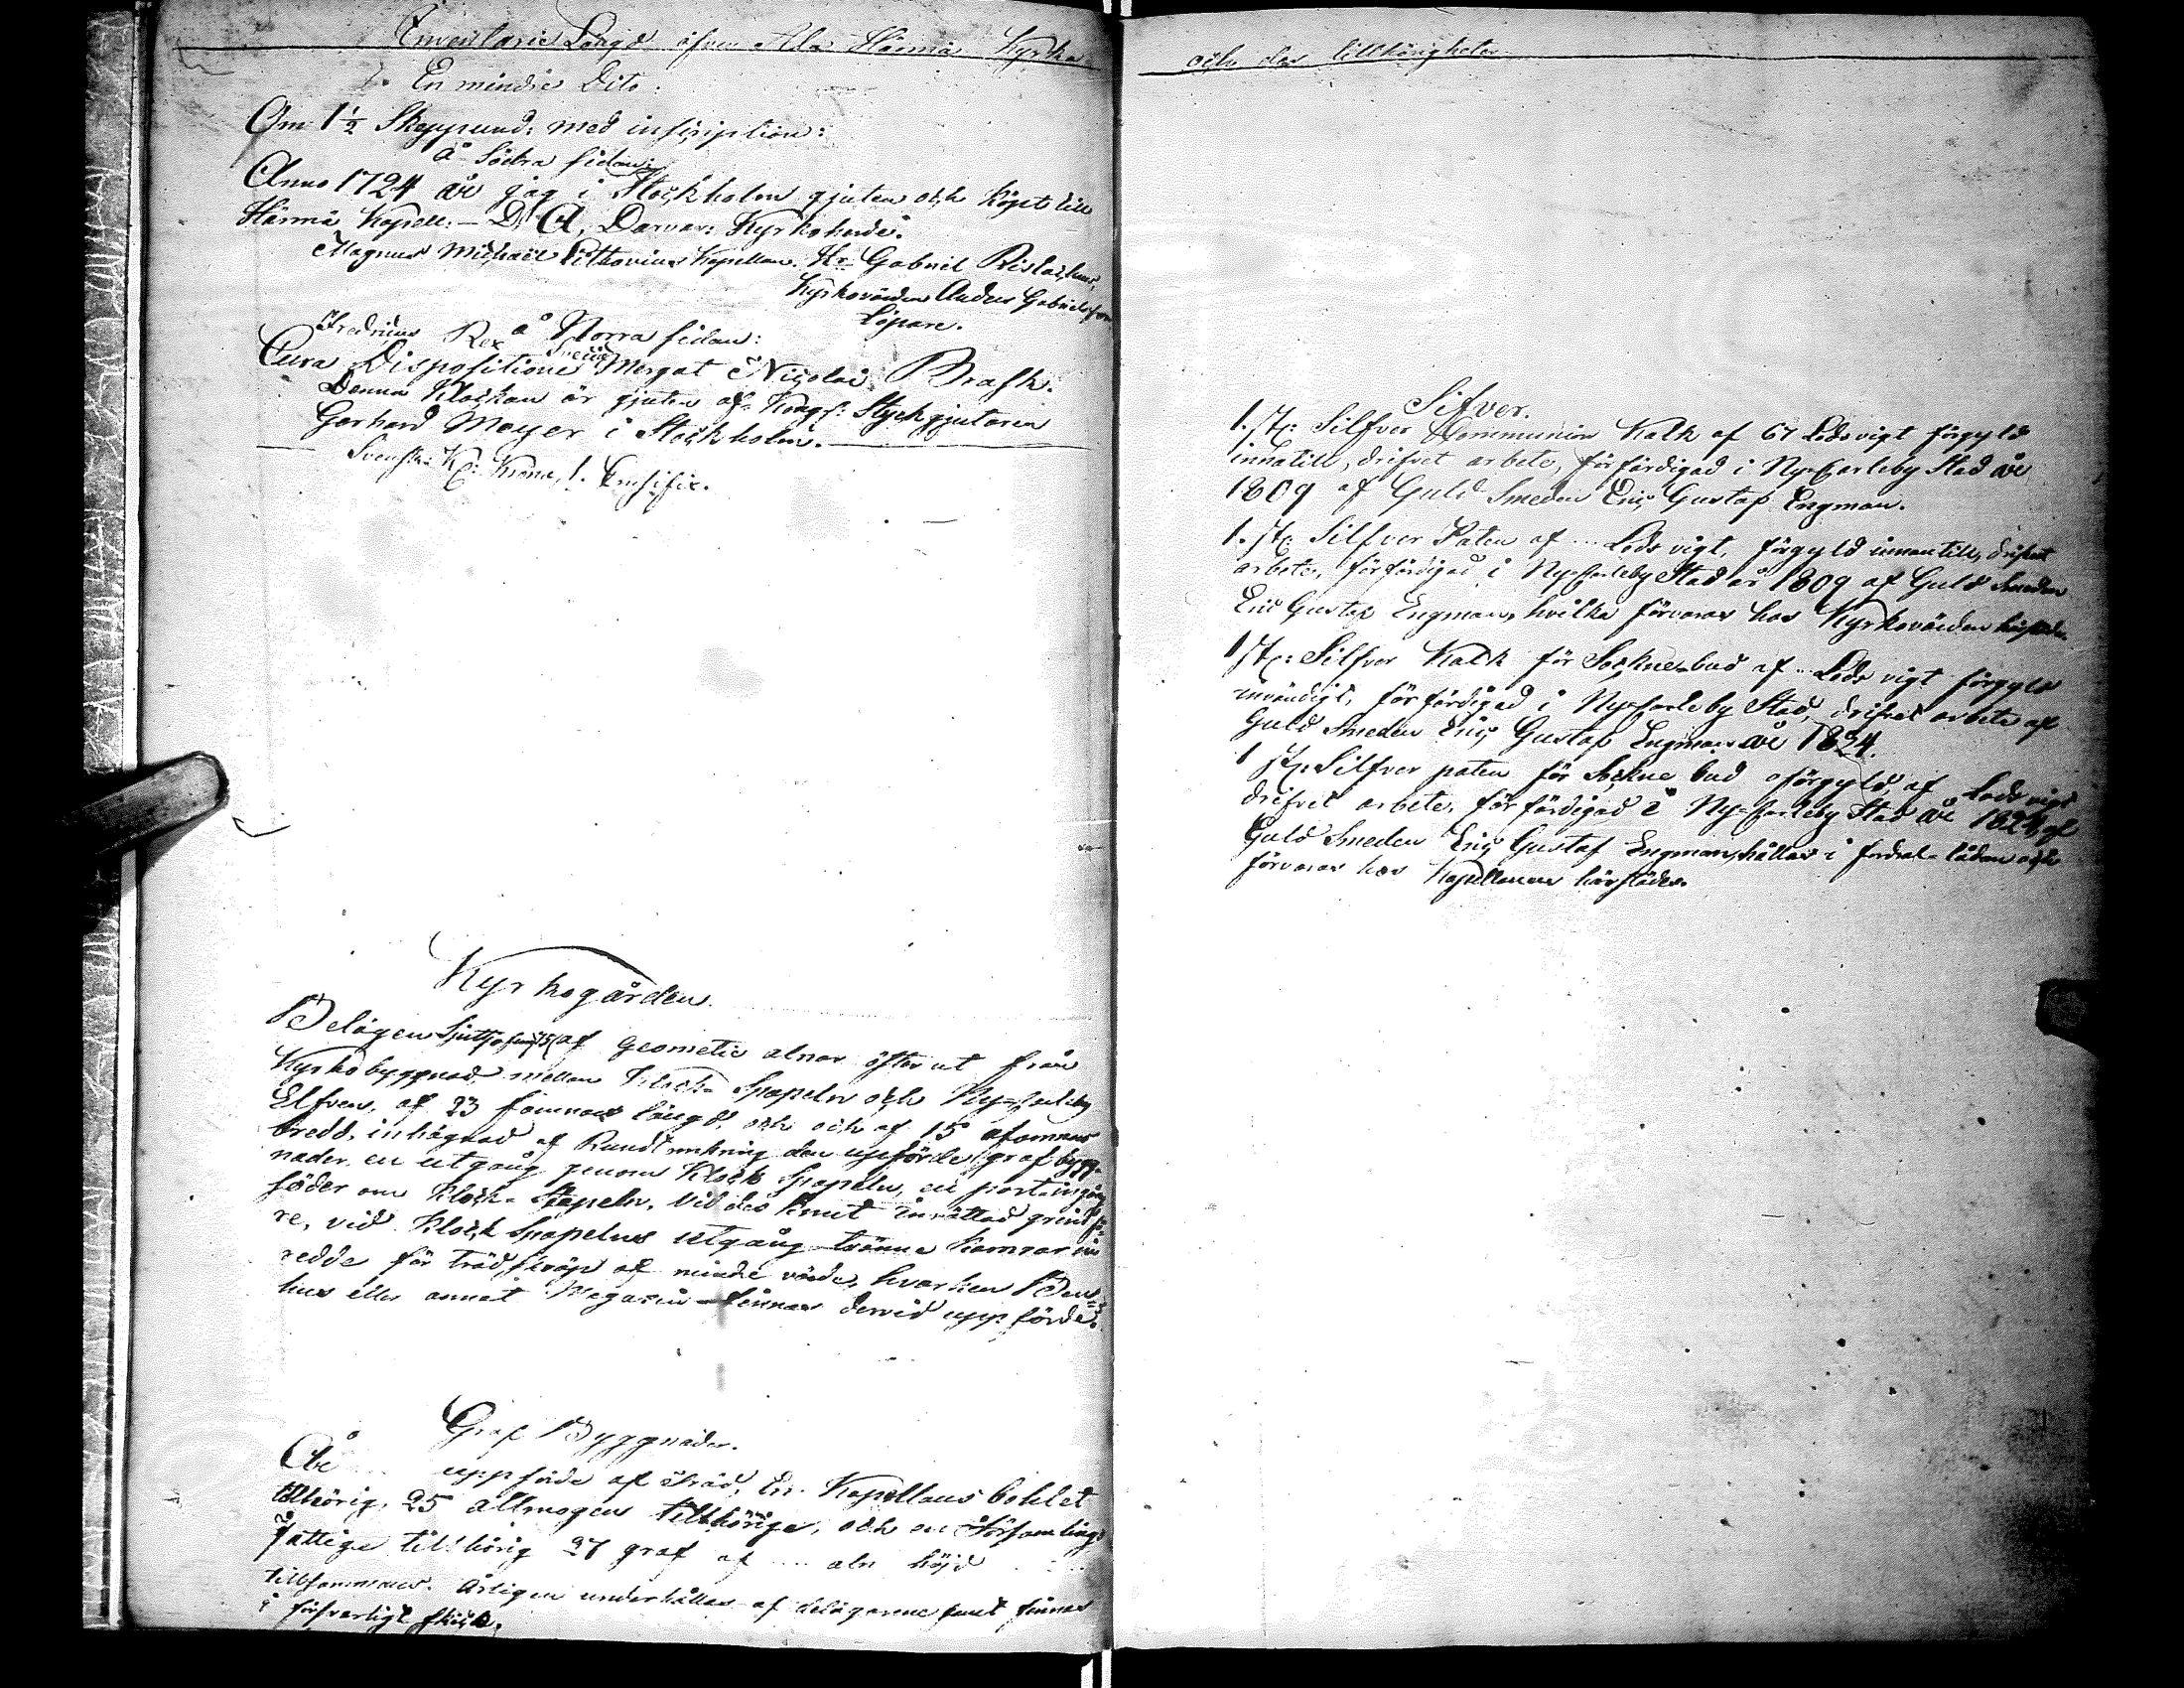 Inventarie Längd öfver Ala Härmä Kyrka
En mindre Dito.
Om 1 1/2 Skeppund: med inscription:
å Södra sidan:
Anno 1724 är jag i Stockholm gjuten och köpt till
Härmä Kapell. — D. A. Kyrkoherde.
Magnus Michaël Lithovius Kapellan. Hr Gabriel
Kyrkovärden Anders Gabrielsson
Löpare.
å Norra sidan:
Fredricus Rex Sveciæ
Cura Dispositione Nicolai Brask.
Denna Klockan är gjuten af Kongl: Styckgjutaren
Gerhard Meyer i Stockholm.
Svensk: K: Krona, 1. Crusifix.
Kyrkogården.
Belägen 75 af Geometie alnar öster ut från
Kyrkobyggnad mellan Klock-Stapeln och Ny-Carleby
Elfven, af 23 famnars längd, och och af 15 famnars
bredd, inhägnad af Rundt omkring den uppförde grafbygg-
nader, en utgång genom Klock Stapeln, en port-ingång
söder om Klock-Stapeln, vid des knut inrättad grind
re, vid Klock Stapelns utgång tvänne kamrar in
redde för träd skräp af mindre värde, hvarken Ben-
hus eller annat Magasin finnas dervid uppförde.
Graf Byggnader.
Äro uppförde af träd, En Kapellans bohlet
tillhörig, 25 allmogen tillhörige, och en Församlings
Fattige tillhörig 27 graf af .... aln höjd
tillsammans. Årligen underhållas af delägarene samt finnas
i försvarligt skick.
och des tillhörigheter
Silver.
1. st: Silfver Communion Kalk af 67 Lodsvigt förgyld
innatill, drifvet arbete, förfärdigad i Ny-Carleby Stad år
1809 af Guld Smeden Eric Gustaf Engman.
1. st: Silfver Paten af ... Lods vigt, förgyld innantill, drifvet
arbete, förfärdigad i Ny-Carleby Stad år 1809 af Guld Smeden
Eric Gustaf Engman, hvilka förvaras hos Kyrkovärden härstädes.
1 st: Silfver Kalk för Sockne-bud af ... Lods vigt förgyld
invändigt, förfärdigad i Ny-Carleby Stad, drifvet arbete af
Guld Smeden Eric Gustaf Engman år 1824.
1 st: Silfver paten för Sockne bud oförgyld, af Lods vigt
drifvet arbete, förfärdigad i Ny-Carleby Stad år 1824, af
Guld Smeden Eric Gustaf Engman, hållas i fodral-lådan och
förvaras hos Kapellanen härstädes.